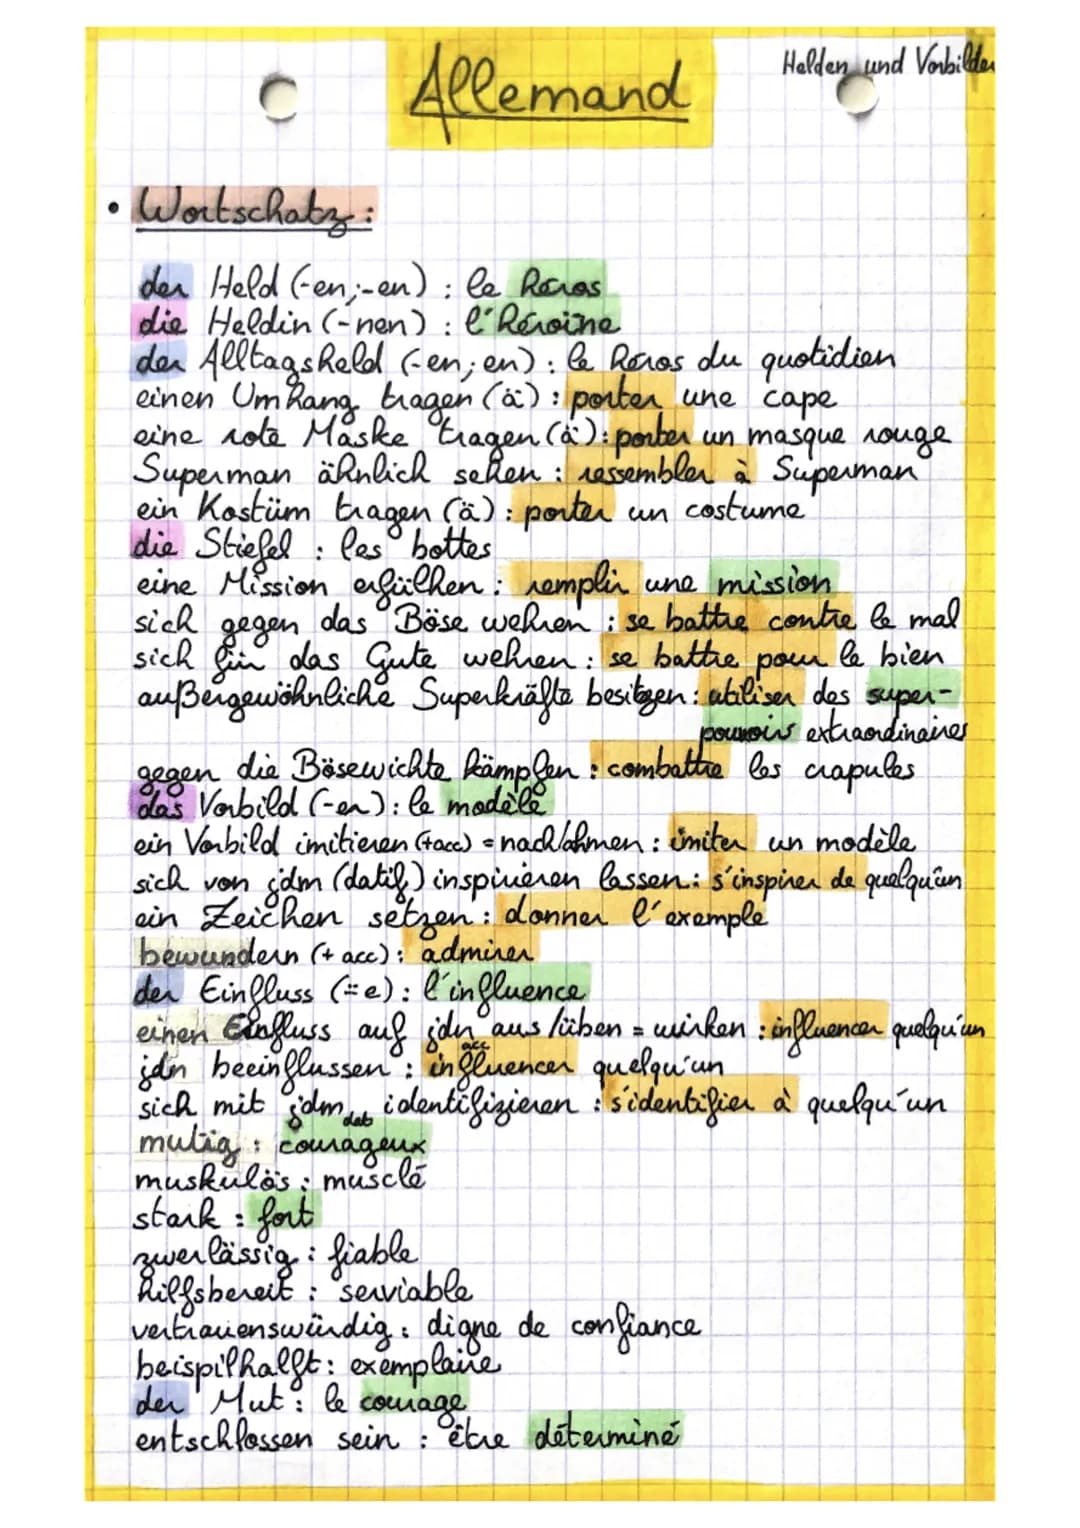 Helden und Vorbilder
Allemand
• Wortschatz :
der Held (-en;-en) : le héros
die Heldin (-nen) : l'héroïne
der Alltagsheld (-en;en) : le héros du quotidien
einen Umhang tragen (ä) : porter une cape
eine rote Maske tragen (ä) : porter un masque rouge
Superman ähnlich sehen : ressembler à Superman
ein Kostüm tragen (ä) : porter un costume
die Stiefel : les bottes
eine Mission erfülhen : remplir une mission
sich gegen das Böse wehren : se battre contre le mal
sich für das Gute wehren : se battre pour le bien
außergewöhnliche Superkräfte besitzen : utiliser des super-
pouvoirs extraordinaires
gegen die Bösewichte kämpfen : combattre les crapules
das Vorbild (-er) : le modèle
ein Vorbild imitieren (+acc) = nach/ahmen : imiter un modèle
sich von jdm (datif) inspirieren lassen : s'inspirer de quelqu'un
ein Zeichen setzen : donner l'exemple
bewundern (+ acc) : admirer
der Einfluss (¨e) : l'influence
einen Einfluss auf jdn aus/üben = wirken : influencer quelqu'un
acc
jdn beeinflussen : influencer quelqu'un
sich mit jdm dat identifizieren : s'identifier à quelqu'un
mutig : courageux
muskulös : musclé
stark : fort
zuverlässig : fiable
hilfsbereit : serviable
vertrauenswürdig : digne de confiance
beispilhalft : exemplaire
der Mut : le courage
entschlossen sein : être déterminé